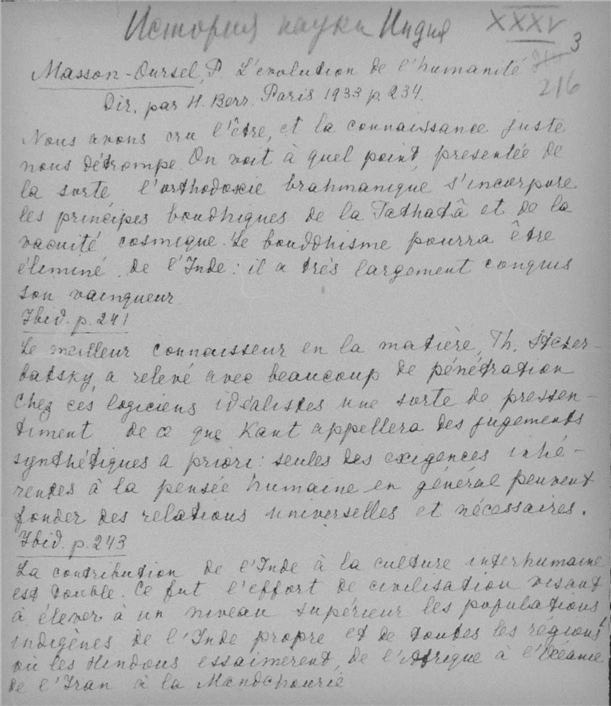 История науки Индия XXXV 3
Masson-Oursel, P. L'évolution de l'humanité
216
Dir. par H. Berr. Paris 1933 p. 234.
Nous avons cru l'être, et la connaissance juste
nous détrompe On voit à quel point, presentée de
la sorte l'orthodoxie brahmanique s'incorpore
les principes boudhiques de la Tathatâ et de la
vacuité cosmique. Le bouddhisme pourra être
éliminé de l'Inde: il a très largement conquis
son vainqueur
Ibid. p. 241
Le meilleur connaisseur en la matière, Th. Stcher-
batsky, a relevé avec beaucoup de pénétration
chez ces logiciens idéalistes une sorte de pressen-
timent de ce que Kant appellera des jugements
synthétiques a priori: seules des exigences inhé-
rendes à la pensée humaine en général peuvent
fonder des relations universelles et nécessaires.
Ibid. p. 243
La contribution de l'Inde à la culture interhumaine
est double. Ce fut l'effort de civilisation visant
à élever à un niveau supérieur les populations
indigènes de l'Inde propre et de toutes les régions
où les Hindous essaimèrent, de l'Afrique à l'Océanie,
de l'Iran à la Mandchourie